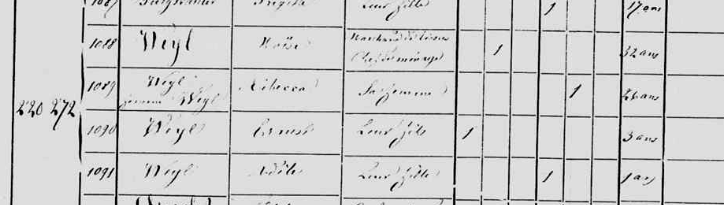 1087 Leur fille 1 17 ans
1088 Weyl Moïse Marchand de
Chef de ménage 1 32 ans
1089 Weyl
Weyl Rébecca Sa femme 1 26 ans
220 272
1090 Weyl Ernest Leur fils 1 3 ans
1091 Weyl Adèle Leur fille 1 1 ans